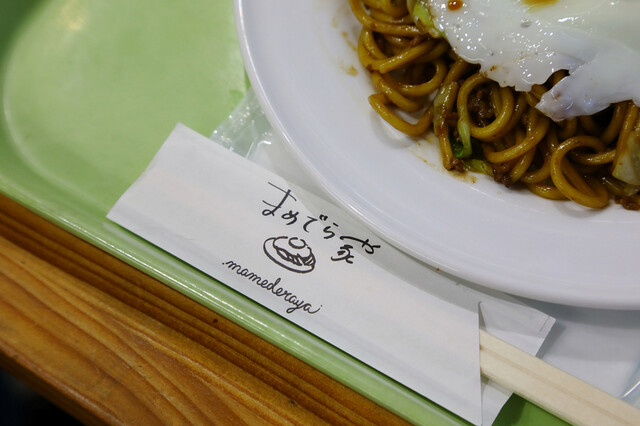 まめでら家
や
mamederaya